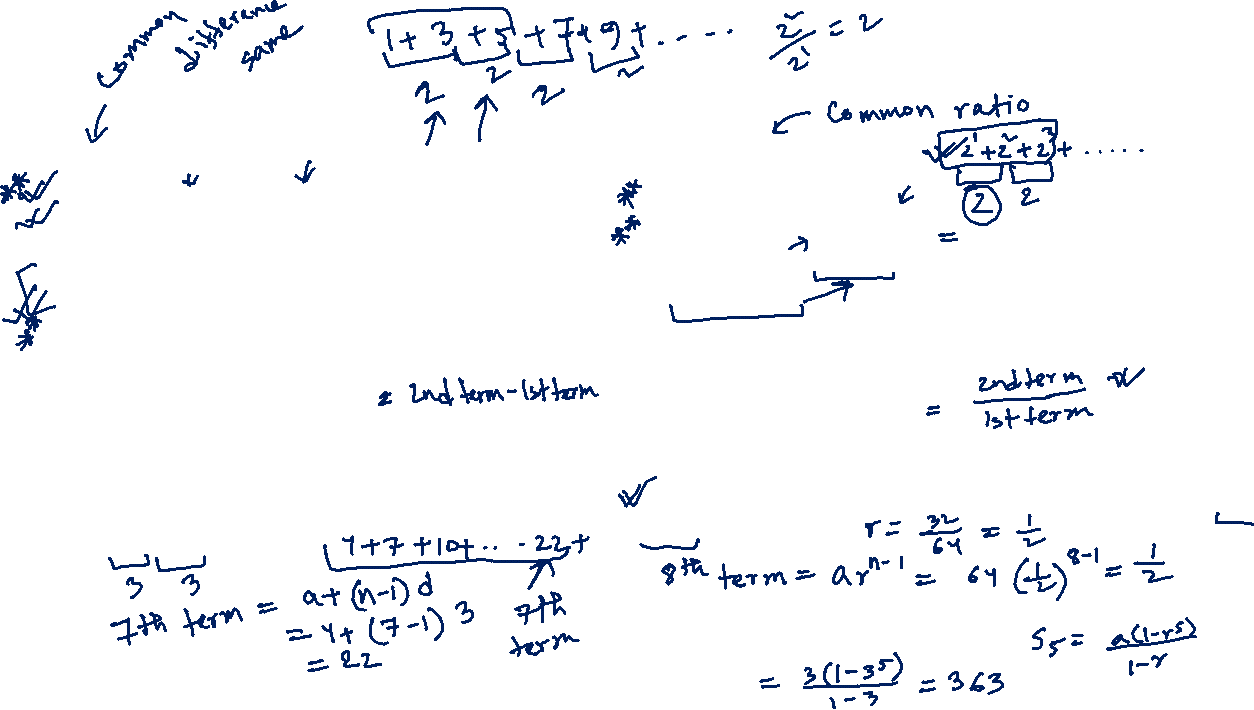 Common difference same
1 + 3 + 5 + 7 + 9 + .....
2 2 2 2
2²/2¹ = 2
Common ratio
2¹ + 2² + 2³ + .....
2 2
=
= 2nd term - 1st term
= 2nd term / 1st term
4 + 7 + 10 + ... . 22 +
3 3
7th term = a + (n-1) d
= 4 + (7-1) 3
= 22
7th term
r = 32/64 = 1/2
8th term = ar^(n-1) = 64 (1/2)^(8-1) = 1/2
S₅ = a(1-r⁵)/1-r
= 3(1-3⁵)/1-3 = 363